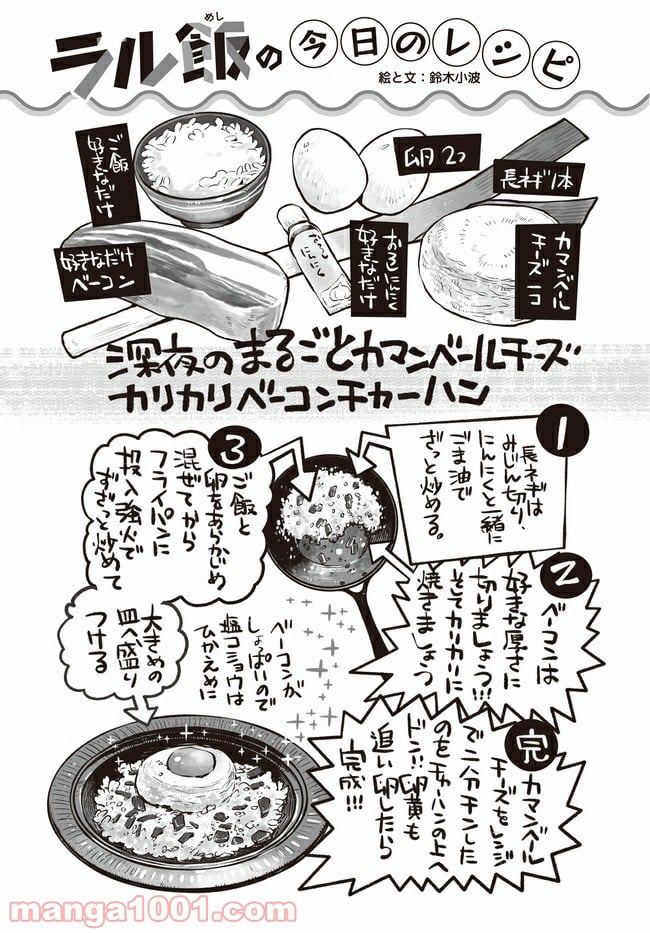 ラル飯の今日のレシピ
めし
絵と文：鈴木小波
ご飯
好きなだけ
卵2つ
長ネギ1本
好きなだけ
ベーコン
おろしにんにく
好きなだけ
カマンベール
チーズ一コ
深夜のまるごとカマンベールチーズ
カリカリベーコンチャーハン
1
長ネギは
みじん切り、
にんにくと一緒に
ごま油で
ざっと炒める。
2
ベーコンは
好きな厚さに
切りましょう!!!
そしてカリカリに
焼きましょう
3
ご飯と
卵をあらかじめ
混ぜてから
フライパンに
投入強火で
ずざっと炒めて
ベーコンが
しょっぱいので
塩コショウは
ひかえめに
大きめの
皿へ盛り
つける
完
カマンベール
チーズをレンジ
で二分チンした
のをチャーハンの上へ
ドン!!卵黄も
追い卵したら
完成!!!
manga1001.com